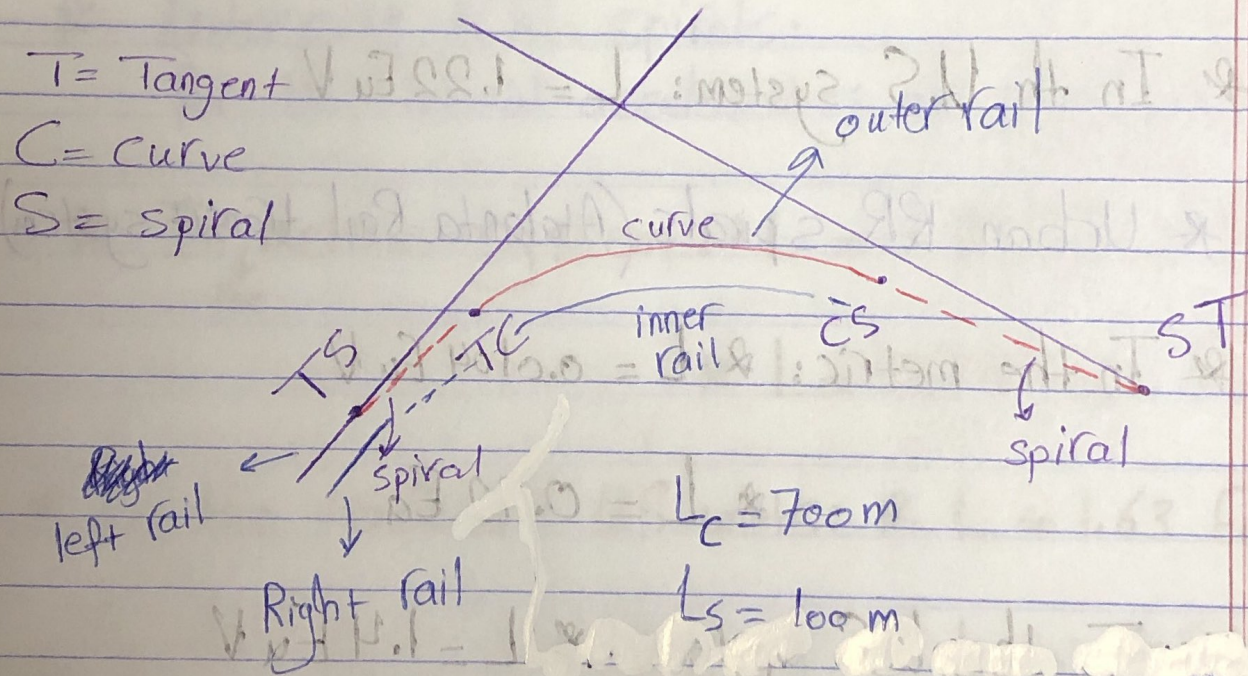 T = Tangent
C = curve
S = spiral
outer rail
curve
inner
rail
TS
TC
CS
ST
spiral
spiral
left rail
Right rail
Lc = 700m
Ls = 100m